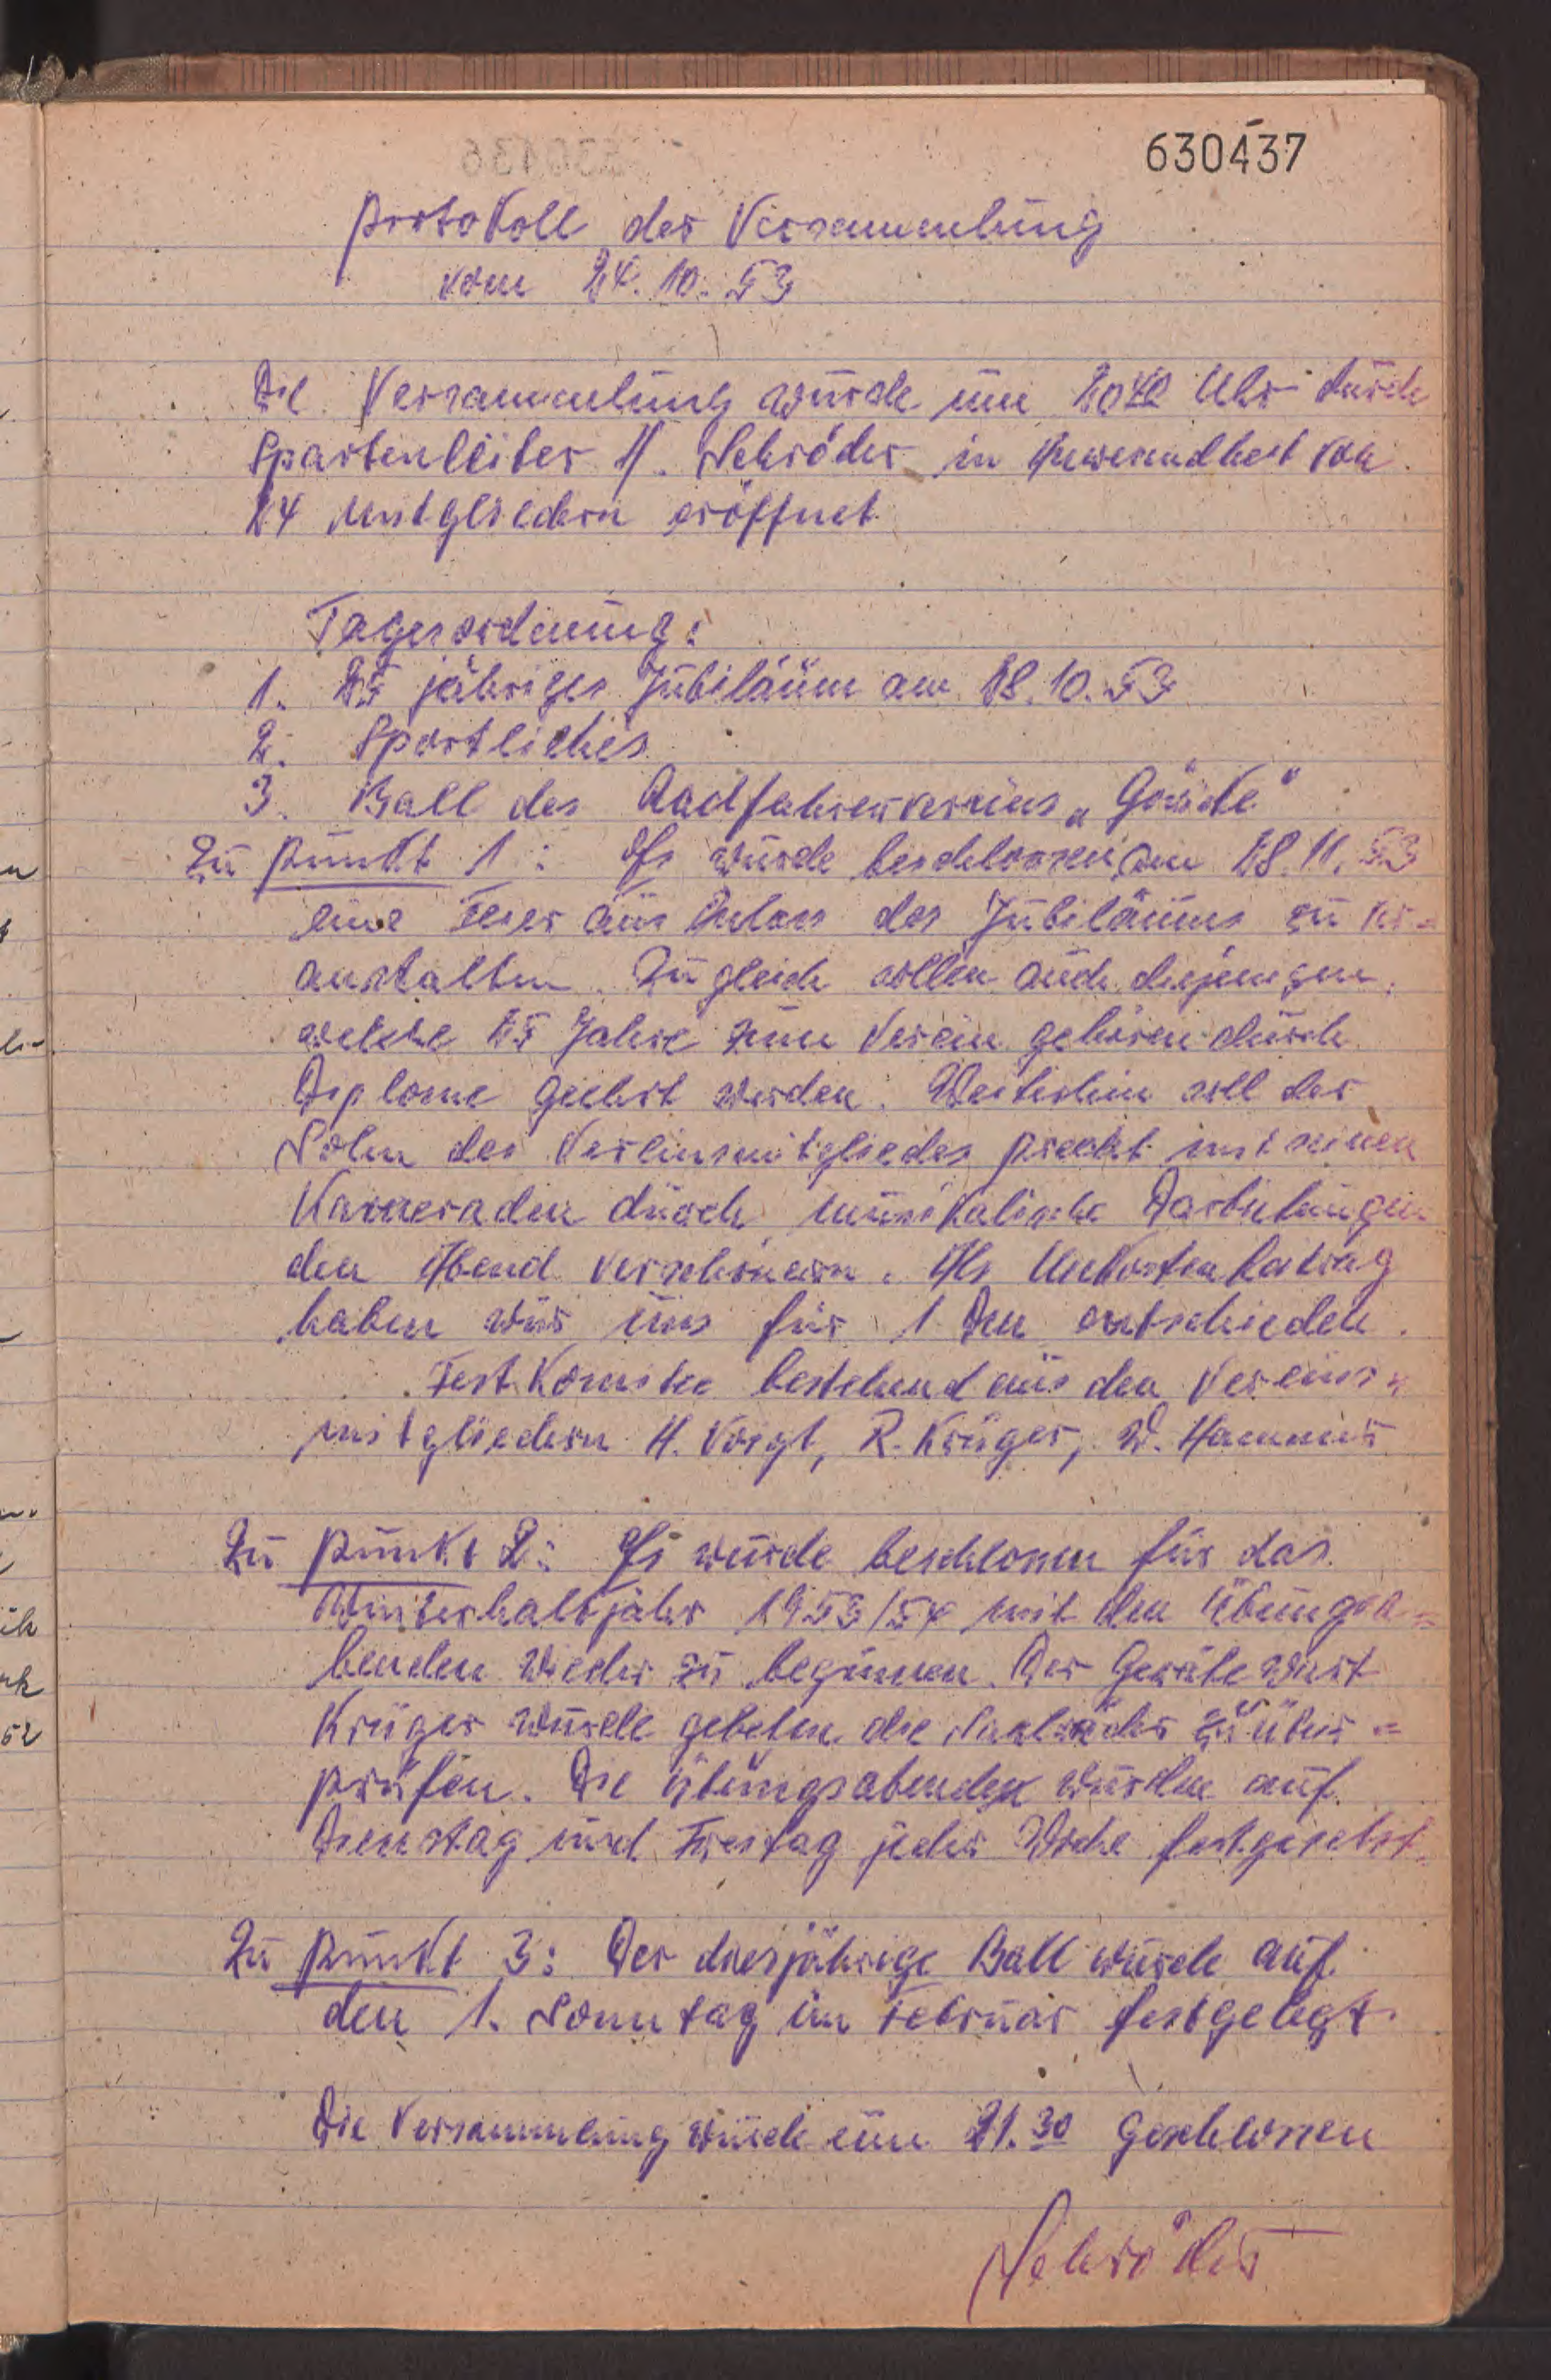 630437
Protokoll der Versammlung
vom 24.10.53
Die Versammlung wurde um 20 Uhr durch
Spartenleiter H. Schröder in Anwesendheit von
24 Mitgliedern eröffnet
Tagesordnung:
1. 25 jähriges Jubiläum am 28.10.53
2. Sportliches
3. Ball des Radfahrervereins „Göricke"
Zu Punkt 1: Es wurde beschlossen, am 28.11.53
eine Feier aus Anlass des Jubiläums zu ver-
anstalten. Zugleich sollen auch diejenigen,
welche 25 Jahre zum Verein gehören durch
Diplome geehrt werden. Weiterhin soll der
Sohn des Vereinsmitgliedes mit seinen
Kameraden durch musikalische Darbietungen
den Abend verschönern. Als Unkostenbeitrag
haben wir uns für 1 Dm entschieden.
Festkomitee bestehend aus den Vereins-
mitgliedern H. Voigt, R. Krüger, W. Hammer
Zu Punkt 2: Es wurde beschlossen für das
Winterhalbjahr 1953/54 mit den Übungsa-
benden wieder zu beginnen. Der Gerätewart
Krüger wurde gebeten die Saalräder zu über-
prüfen. Die Übungsabenden wurden auf
Dienstag und Freitag jeder Woche festgesetzt.
Zu Punkt 3: Der diesjährige Ball wurde auf
den 1. Sonntag im Februar festgelegt.
Die Versammlung wurde um 21.30 geschlossen
Schröder